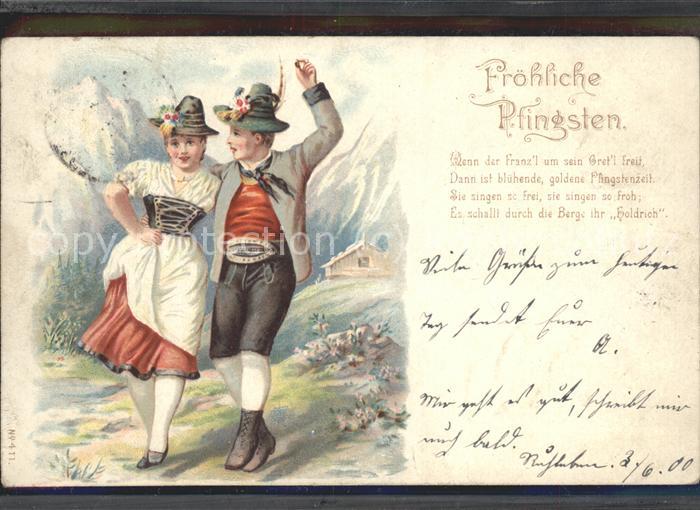 Fröhliche
Pfingsten.
Wenn der Franz'l um sein Gret'l freit,
Dann ist blühende, goldene Pfingstenzeit.
Sie singen so frei, sie singen so froh;
Es schallt durch die Berge ihr „Holdrioh".
Viele Grüße zum heutigen
Tag sendet Euer
A.
Mir geht es gut, schreibt mir
auch bald.
3/6.00
No 411
copyright protection